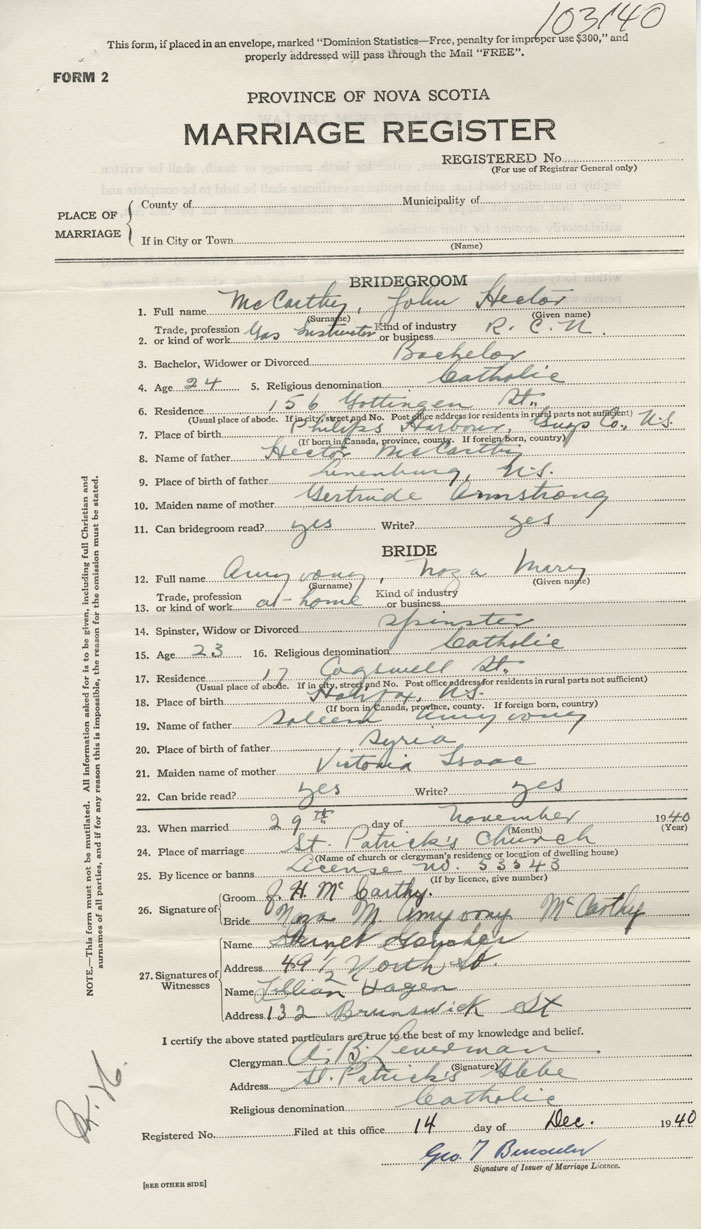 103140
This form, if placed in an envelope, marked "Dominion Statistics—Free, penalty for improper use $300," and
properly addressed will pass through the Mail "FREE".
FORM 2
PROVINCE OF NOVA SCOTIA
MARRIAGE REGISTER
REGISTERED No.
(For use of Registrar General only)
PLACE OF MARRIAGE
County of Municipality of
If in City or Town
(Name)
BRIDEGROOM
1. Full name McCarthy, John Hector
(Surname) (Given name)
2. Trade, profession or kind of work Gas Instructor Kind of industry or business R.C.N.
3. Bachelor, Widower or Divorced Bachelor
4. Age 24 5. Religious denomination Catholic
6. Residence 156 Gottingen St.
(Usual place of abode. If in city, street and No. Post office address for residents in rural parts not sufficient)
7. Place of birth Philips Harbour, Guys Co., N.S.
(If born in Canada, province, county. If foreign born, country)
8. Name of father Hector McCarthy
9. Place of birth of father Lunenburg, N.S.
10. Maiden name of mother Gertrude Armstrong
11. Can bridegroom read? yes Write? yes
BRIDE
12. Full name Amyoony, Noza Mary
(Surname) (Given name)
13. Trade, profession or kind of work at-home Kind of industry or business
14. Spinster, Widow or Divorced Spinster
15. Age 23 16. Religious denomination Catholic
17. Residence 17 Cogswell St.
(Usual place of abode. If in city, street and No. Post office address for residents in rural parts not sufficient)
18. Place of birth Halifax, N.S.
(If born in Canada, province, county. If foreign born, country)
19. Name of father Saleem Amyoony
20. Place of birth of father Syria
21. Maiden name of mother Victoria Isaac
22. Can bride read? yes Write? yes
23. When married 29th day of November 1940
(Month) (Year)
24. Place of marriage St. Patrick's Church
(Name of church or clergyman's residence or location of dwelling house)
25. By licence or banns License no. 53543
(If by licence, give number)
26. Signature of
Groom J. H. McCarthy.
Bride Noza M. Amyoony McCarthy
27. Signatures of Witnesses
Name
Address 49½ North St.
Name Lillian Hagen
Address 132 Brunswick St
I certify the above stated particulars are true to the best of my knowledge and belief.
Clergyman
(Signature)
Address St. Patrick's Glebe
Religious denomination Catholic
Registered No. Filed at this office 14 day of Dec. 1940
Geo. T
Signature of Issuer of Marriage Licence.
[SEE OTHER SIDE]
NOTE.—This form must not be mutilated. All information asked for is to be given, including full Christian and
surnames of all parties, and if for any reason this is impossible, the reason for the omission must be stated.